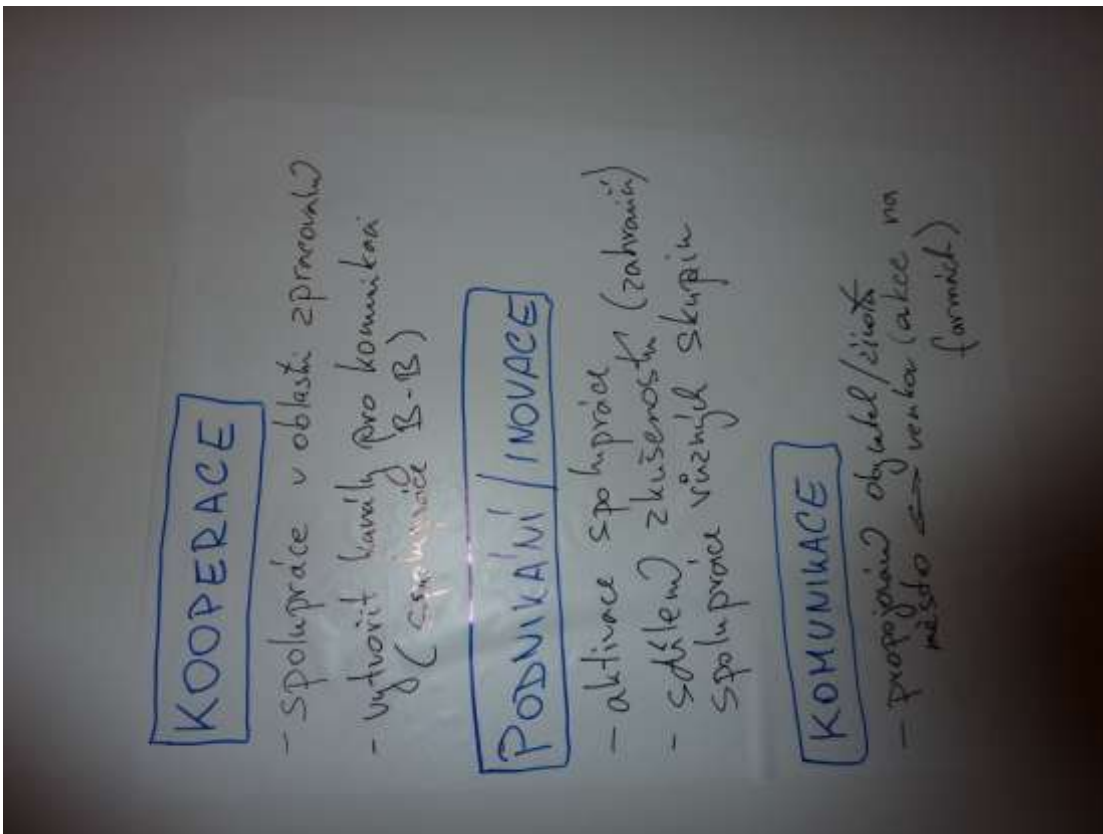 KOOPERACE
- spolupráce v oblasti zpracování
- vytvořit kanály pro komunikaci
(spolupráce B-B)
PODNIKÁNÍ / INOVACE
- aktivace spolupráce
- sdílení zkušeností (zahraničí)
spolupráce různých skupin
KOMUNIKACE
- propojování obyvatel/života
město <-> venkov (akce na
farmách)